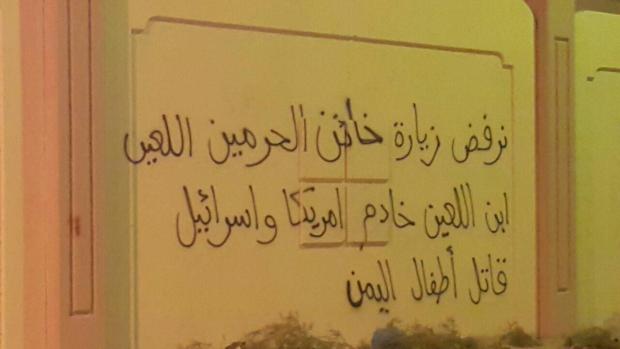 نرفض زيارة خائن الحرمين اللعين
ابن اللعين خادم امريكا واسرائيل
قاتل أطفال اليمن